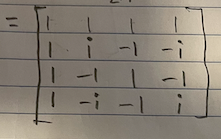 = [ 1 1 1 1
1 i -1 -i
1 -1 1 -1
1 -i -1 i ]